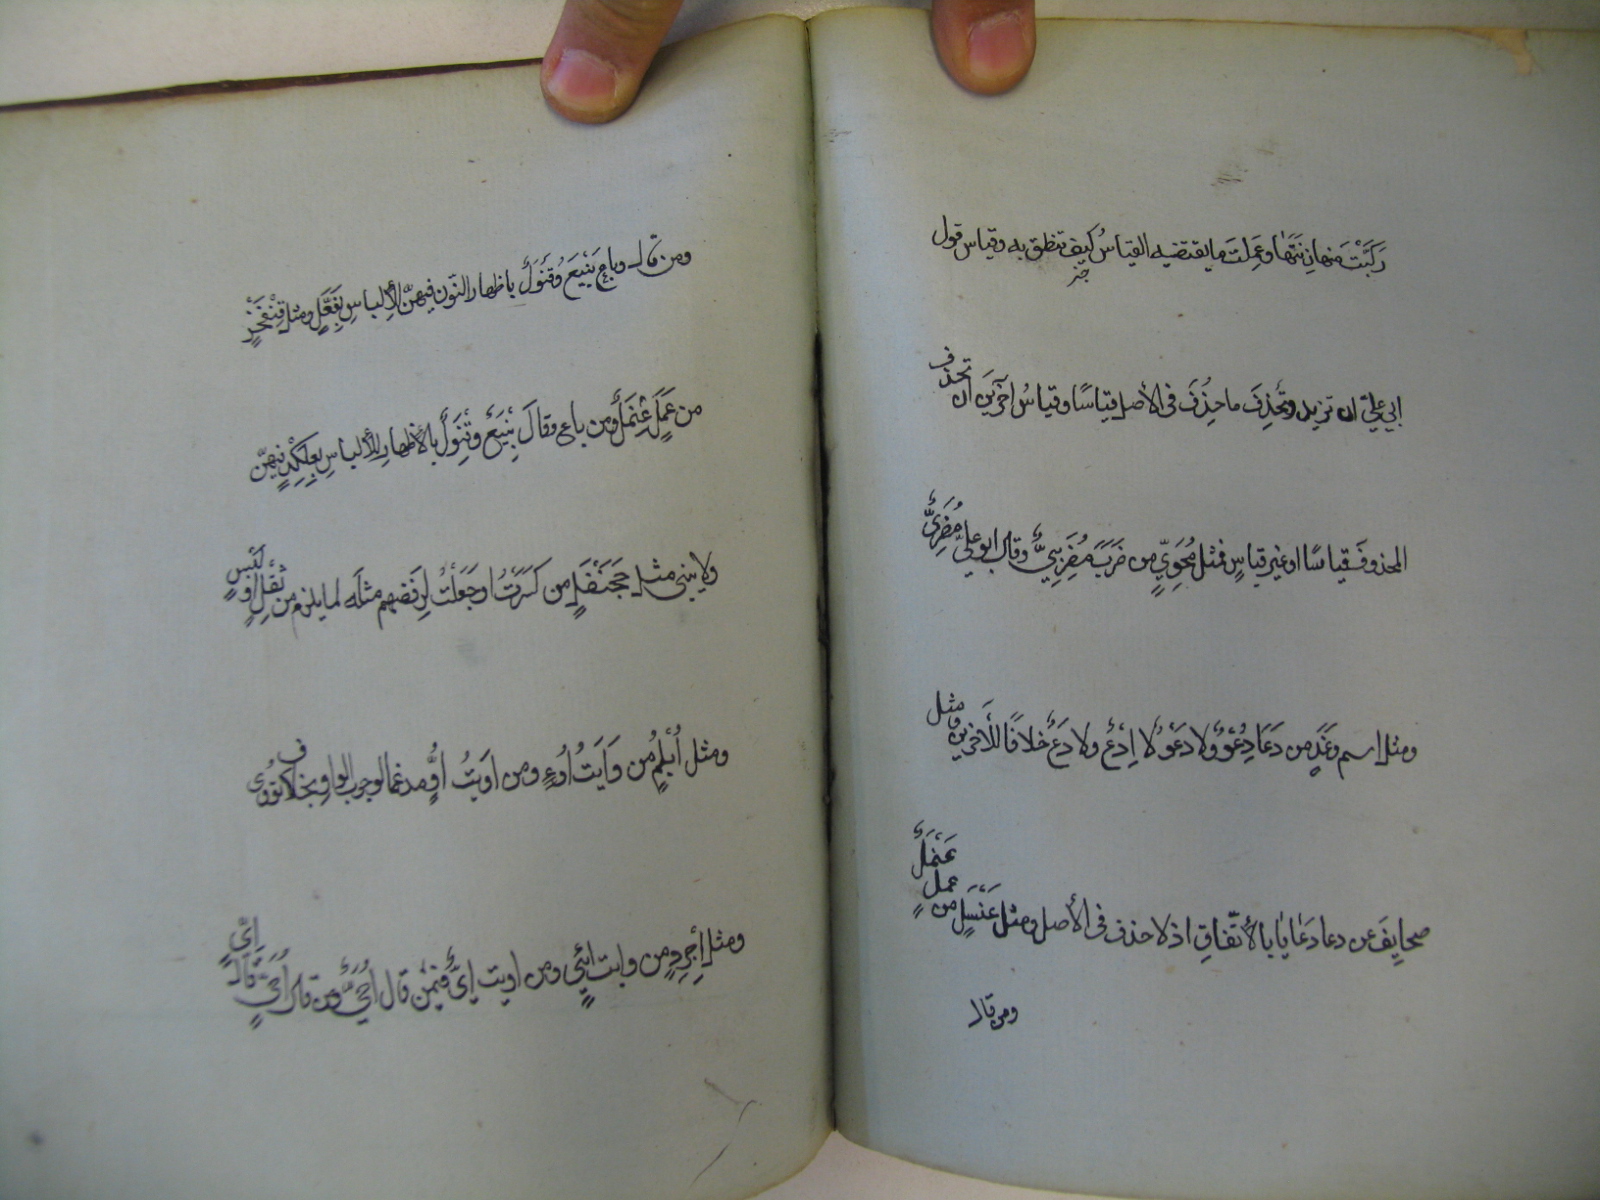 رَكَّبْتَ مِنهَا زِنَتَهَا وعَمِلتَ ما يقتضيه القياسُ كيف تنطق به وقياس قول
ابي عليّ ان تزيد وتحذِفَ ما حذِفَ في الأصل قياسًا وقياسُ آخرَينَ ان تحذف
المحذوفَ قياسًا او غير قياسٍ فمثل مُحَوِيٍّ من ضَرَبَ مُضَرِبيٌّ وقال ابو عليّ مُضَرِيٌّ
ومثل اسم وغَدٍ من دَعَا دِعْوٌ ولا دَعْوٌ لا اِدْعٌ ولا دَعٌ خلافًا للآخرين ومثل
صحايفَ من دعا دَعَايَا بالأتّفاقِ اذ لا حذف في الأصل ومثل عَنْسَلٍ من عمل عَنْمَلٌ
ومن قال
ومن قال وباع بَنْيَعٌ وقَنْوَلٌ باظهار النّون فيهنّ للإلباسِ بفَعَّلٍ ومثل قِنْفَخْرٍ
من عَمِلَ عِنْمَلٌّ ومن باع وقالَ بِنْيَعٌّ وقِنْوَلٌّ بالأظهار للألباسِ بعِلَّكْدٍ فيهنّ
ولا يبنى مثل جَحَنْفَلٍ من كَسَرْتُ او جَعَلْتُ لِرَفضهم مثلَه لما يلزم من ثِقْلٍ او لَبْسٍ
ومثل اُبْلُمٍ من وَاَيتُ اُوءٍ ومن اوَيتُ اُوٍّ مدغما لوجوب الواو بخلاف تووى
ومثل إِجْرِدٍ من وايت اِيْئٍ ومن اويت اِيٍّ فيمَن قال اُحَيٌّ ومن قال اُحَيٍّ قال اِيٍّ